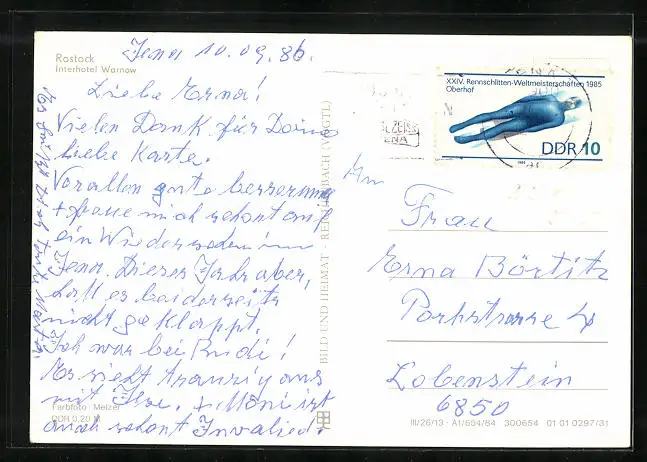 Rostock
Interhotel Warnow
Jena 10.09.86.
Liebe Erna!
Vielen Dank für Deine
liebe Karte.
Vor allen gute besserung
+ freue mich schont auf
ein Wiedersehen im
Jena. Dieses Jahr aber,
hatt es beiderseits
nicht geklappt.
Ich war bei Rudi!
Es sieht traurig aus
mit Ilse. + Möni ist
auch schont Invalied.
Farbfoto: Melzer
DDR 0,20 M
BILD UND HEIMAT · REICHENBACH (VOGTL)
XXIV. Rennschlitten-Weltmeisterschaften 1985
Oberhof
DDR 10
ZEISS
JENA
An
Frau
Erna Börtitz
Parkstrasse 4
Lobenstein
6850
III/26/13 · A1/654/84 300654 01 01 0297/31